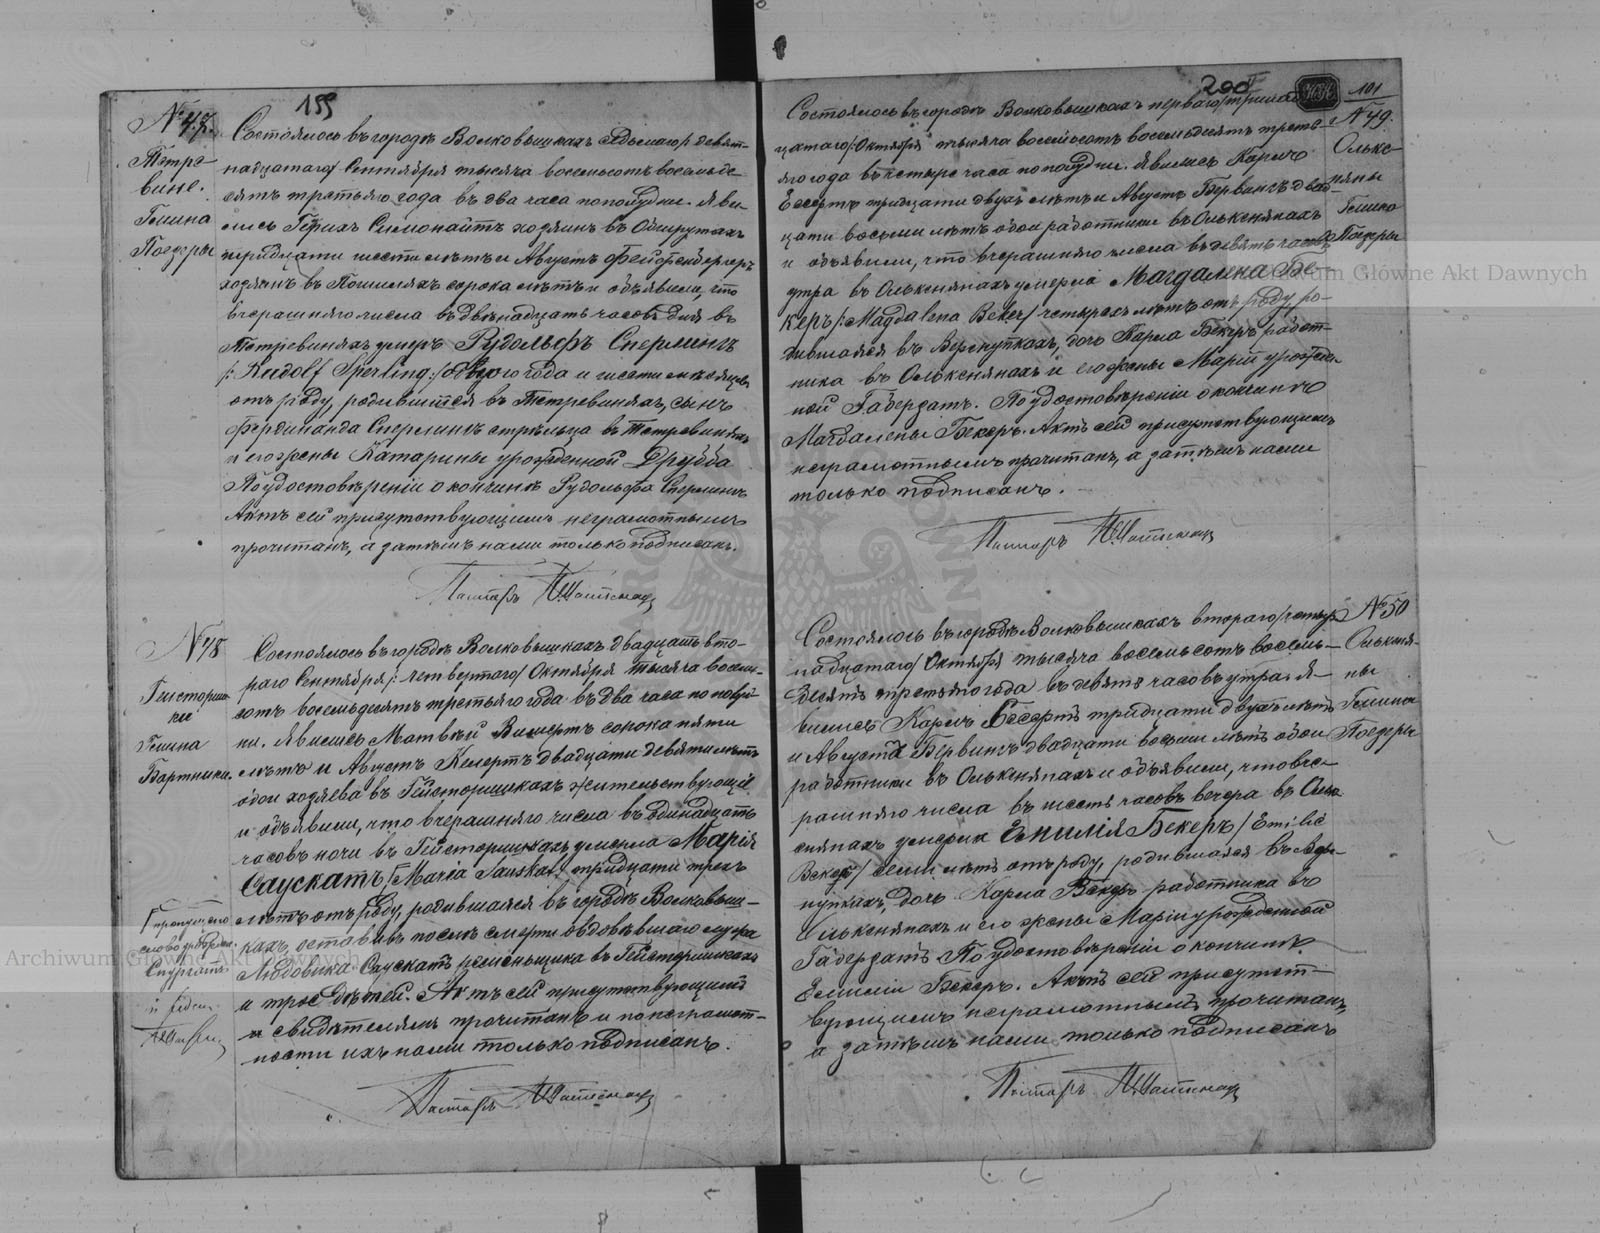 155
№ 47.
Тетре-
вине.
Гмина
Поедеры
Состоялось въ городѣ Волковышкахъ седьмаго/девят-
надцатаго/ Сентября тысяча восемьсотъ восемьде
сятъ третьяго года въ два часа пополудни. Яви
лись Герихъ Симонайтъ хозяинъ въ
тридцати шести лѣтъ и Августъ
хозяинъ въ сорока лѣтъ и объявили, что
вчерашняго числа въ двѣнадцать часовъ дня въ
Тетревиняхъ умеръ Рудольфъ Сперлингъ
/: Rudolf Sperling:/ одного года и шести мѣсяцевъ
отъ роду, родившійся въ Тетревиняхъ, сынъ
Фердинанда Сперлингъ стрѣльца въ Тетревиняхъ
и его жены Катарины урожденной Друбба
По удостовѣреніи о кончинѣ Рудольфа Сперлингъ
Актъ сей присутствующимъ неграмотнымъ
прочитанъ, а затѣмъ нами только подписанъ.
Пасторъ
№ 48
Гисториш-
ки
Гмина
Бартники.
Состоялось въ городѣ Волковышкахъ двадцать вто-
раго Сентября/: четвертаго/ Октября тысяча восемь-
сотъ восемьдесятъ третьяго года въ два часа пополуд-
ни. Явились Матвѣй сорока пяти
лѣтъ и Августъ двадцати девяти лѣтъ
обои хозяева въ Гисторишкахъ жительствующіе
и объявили, что вчерашняго числа въ одинадцать
часовъ ночи въ Гисторишкахъ умерла Марія
Саускатъ /Maria Sauskat/ тридцати трехъ
лѣтъ отъ роду, родившаяся въ городѣ Волковыш-
кахъ, оставивъ послѣ смерти овдовѣвшаго мужа
Людовика Саускатъ ремесльщика въ Гисторишкахъ
и трое дѣтей. Актъ сей присутствующимъ
и свидѣтелямъ прочитанъ и по неграмот-
ности ихъ нами только подписанъ.
пропущено
слово урожден.
Пасторъ
200
101
№ 49.
Олькс-
няны
Гмина
Поедеры
Состоялось въ городѣ Волковышкахъ перваго/тринад
цатаго/: Октября тысяча восемьсотъ восемьдесятъ треть-
яго года въ четыре часа пополудни. Явились Карлъ
тридцати двухъ лѣтъ и Августъ Бервингъ двад-
цати восьми лѣтъ обои работники въ Ольксенянахъ
и объявили, что вчерашняго числа въ девять часовъ
утра въ Ольксенянахъ умерла Магдалена Бе-
керъ /: Magdalena Beker/ четырехъ лѣтъ отъ роду ро-
дившаяся въ Вержупкахъ, дочь Карла Бекеръ работ-
ника въ Ольксенянахъ и его жены Маріи урожден-
ной Габердатъ. По удостовѣреніи о кончинѣ
Магдалены Бекеръ. Актъ сей присутствующимъ
неграмотнымъ прочитанъ, а затѣмъ нами
только подписанъ.
Пасторъ
№ 50
Ольксня-
ны
Гмина
Поедеры
Состоялось въ городѣ Волковышкахъ втораго/четыр
надцатаго/ Октября тысяча восемьсотъ восемь-
десятъ третьяго года въ девять часовъ утра. Я-
вились Карлъ тридцати двухъ лѣтъ
и Августъ Бервингъ двадцати восьми лѣтъ обои
работники въ Ольксенянахъ и объявили, что вче-
рашняго числа въ шесть часовъ вечера въ Ольк
сенянахъ умерла Емилія Бекеръ / Emilie
Beker/ семи лѣтъ отъ роду, родившаяся въ Вер-
жупкахъ, дочь Карла Бекеръ работника въ
Ольксенянахъ и его жены Маріи урожденной
Габердатъ По удостовѣреніи о кончинѣ
Емиліи Бекеръ. Актъ сей присутст-
вующимъ неграмотнымъ прочитанъ,
а затѣмъ нами только подписанъ
Пасторъ
Archiwum Główne Akt Dawnych
Archiwum Główne Akt Dawnych